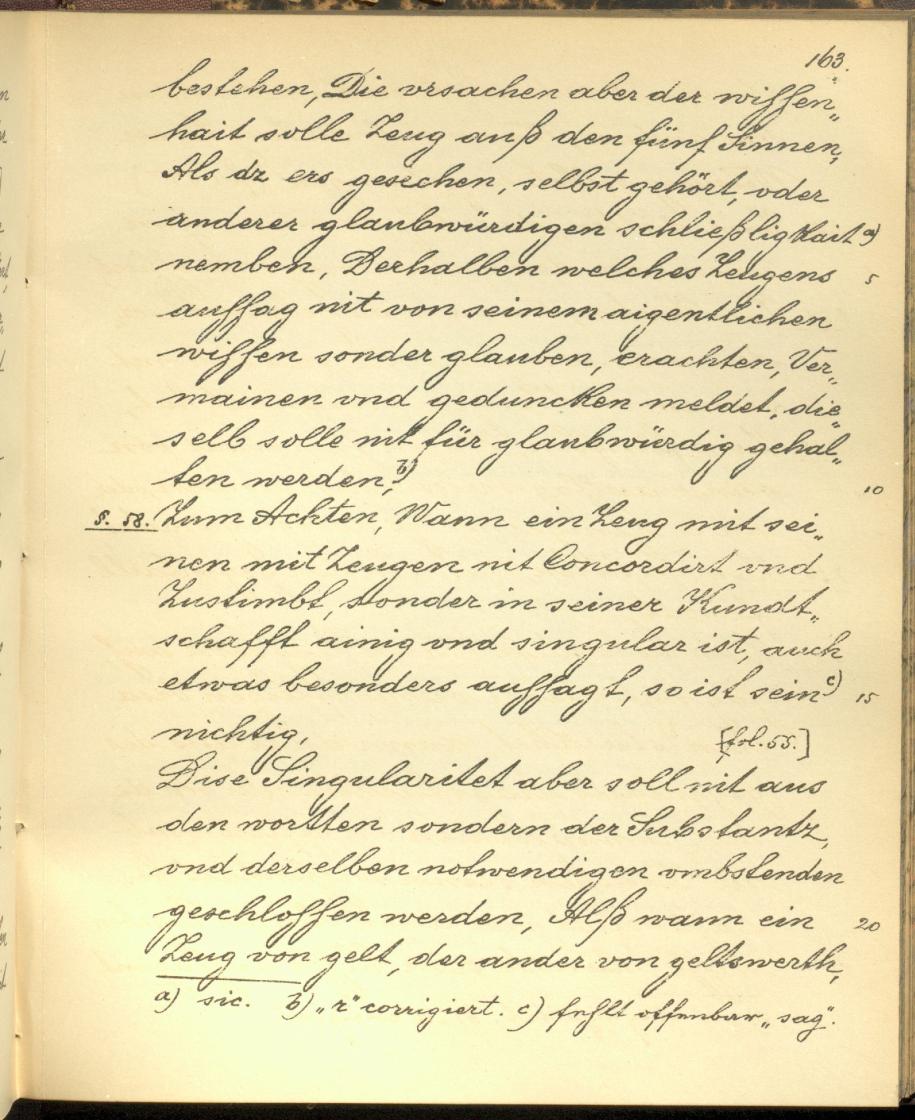 163.
bestehen, Die vrsachen aber der wissen„
hait solle Zeug auß den fünf Sinnen,
Als dz ers gesechen, selbst gehört, oder
anderer glaubwürdigen schließligkait a)
nemben, Derhalben welches Zeugens 5
aussag nit von seinem aigentlichen
wissen sonder glauben, erachten, Ver„
mainen vnd geduncken meldet, die„
selb solle nit für glaubwürdig gehal„
ten werden, b) 10
§. 58. Zum Achten, Wann ein Zeug mit sei„
nen mit Zeugen nit Concordirt vnd
Zustimbt, sonder in seiner Kundt„
schafft ainig vnd singular ist, auch
etwas besonders aussagt, so ist sein c) 15
nichtig, [fol. 55.]
Dise Singularitet aber soll nit aus
den wortten sondern der Substantz,
vnd derselben notwendigen vmbstenden
geschlossen werden, Alß wann ein 20
Zeug von gelt, der ander von geltswerth,
a) sic. b) „r" corrigiert. c) fehlt offenbar „sag".